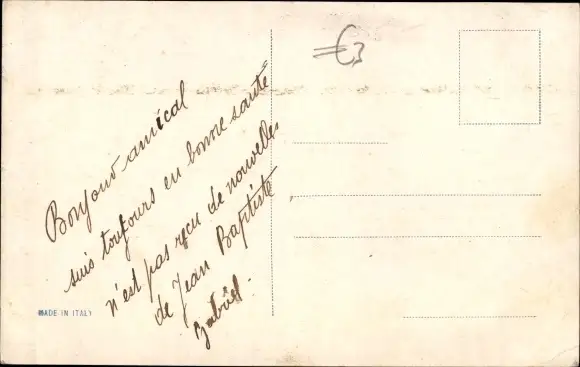 Bonjour amical
suis toujours en bonne santé
n'est pas reçu de nouvelles
de Jean Baptiste
Gabriel.
€3
MADE IN ITALY